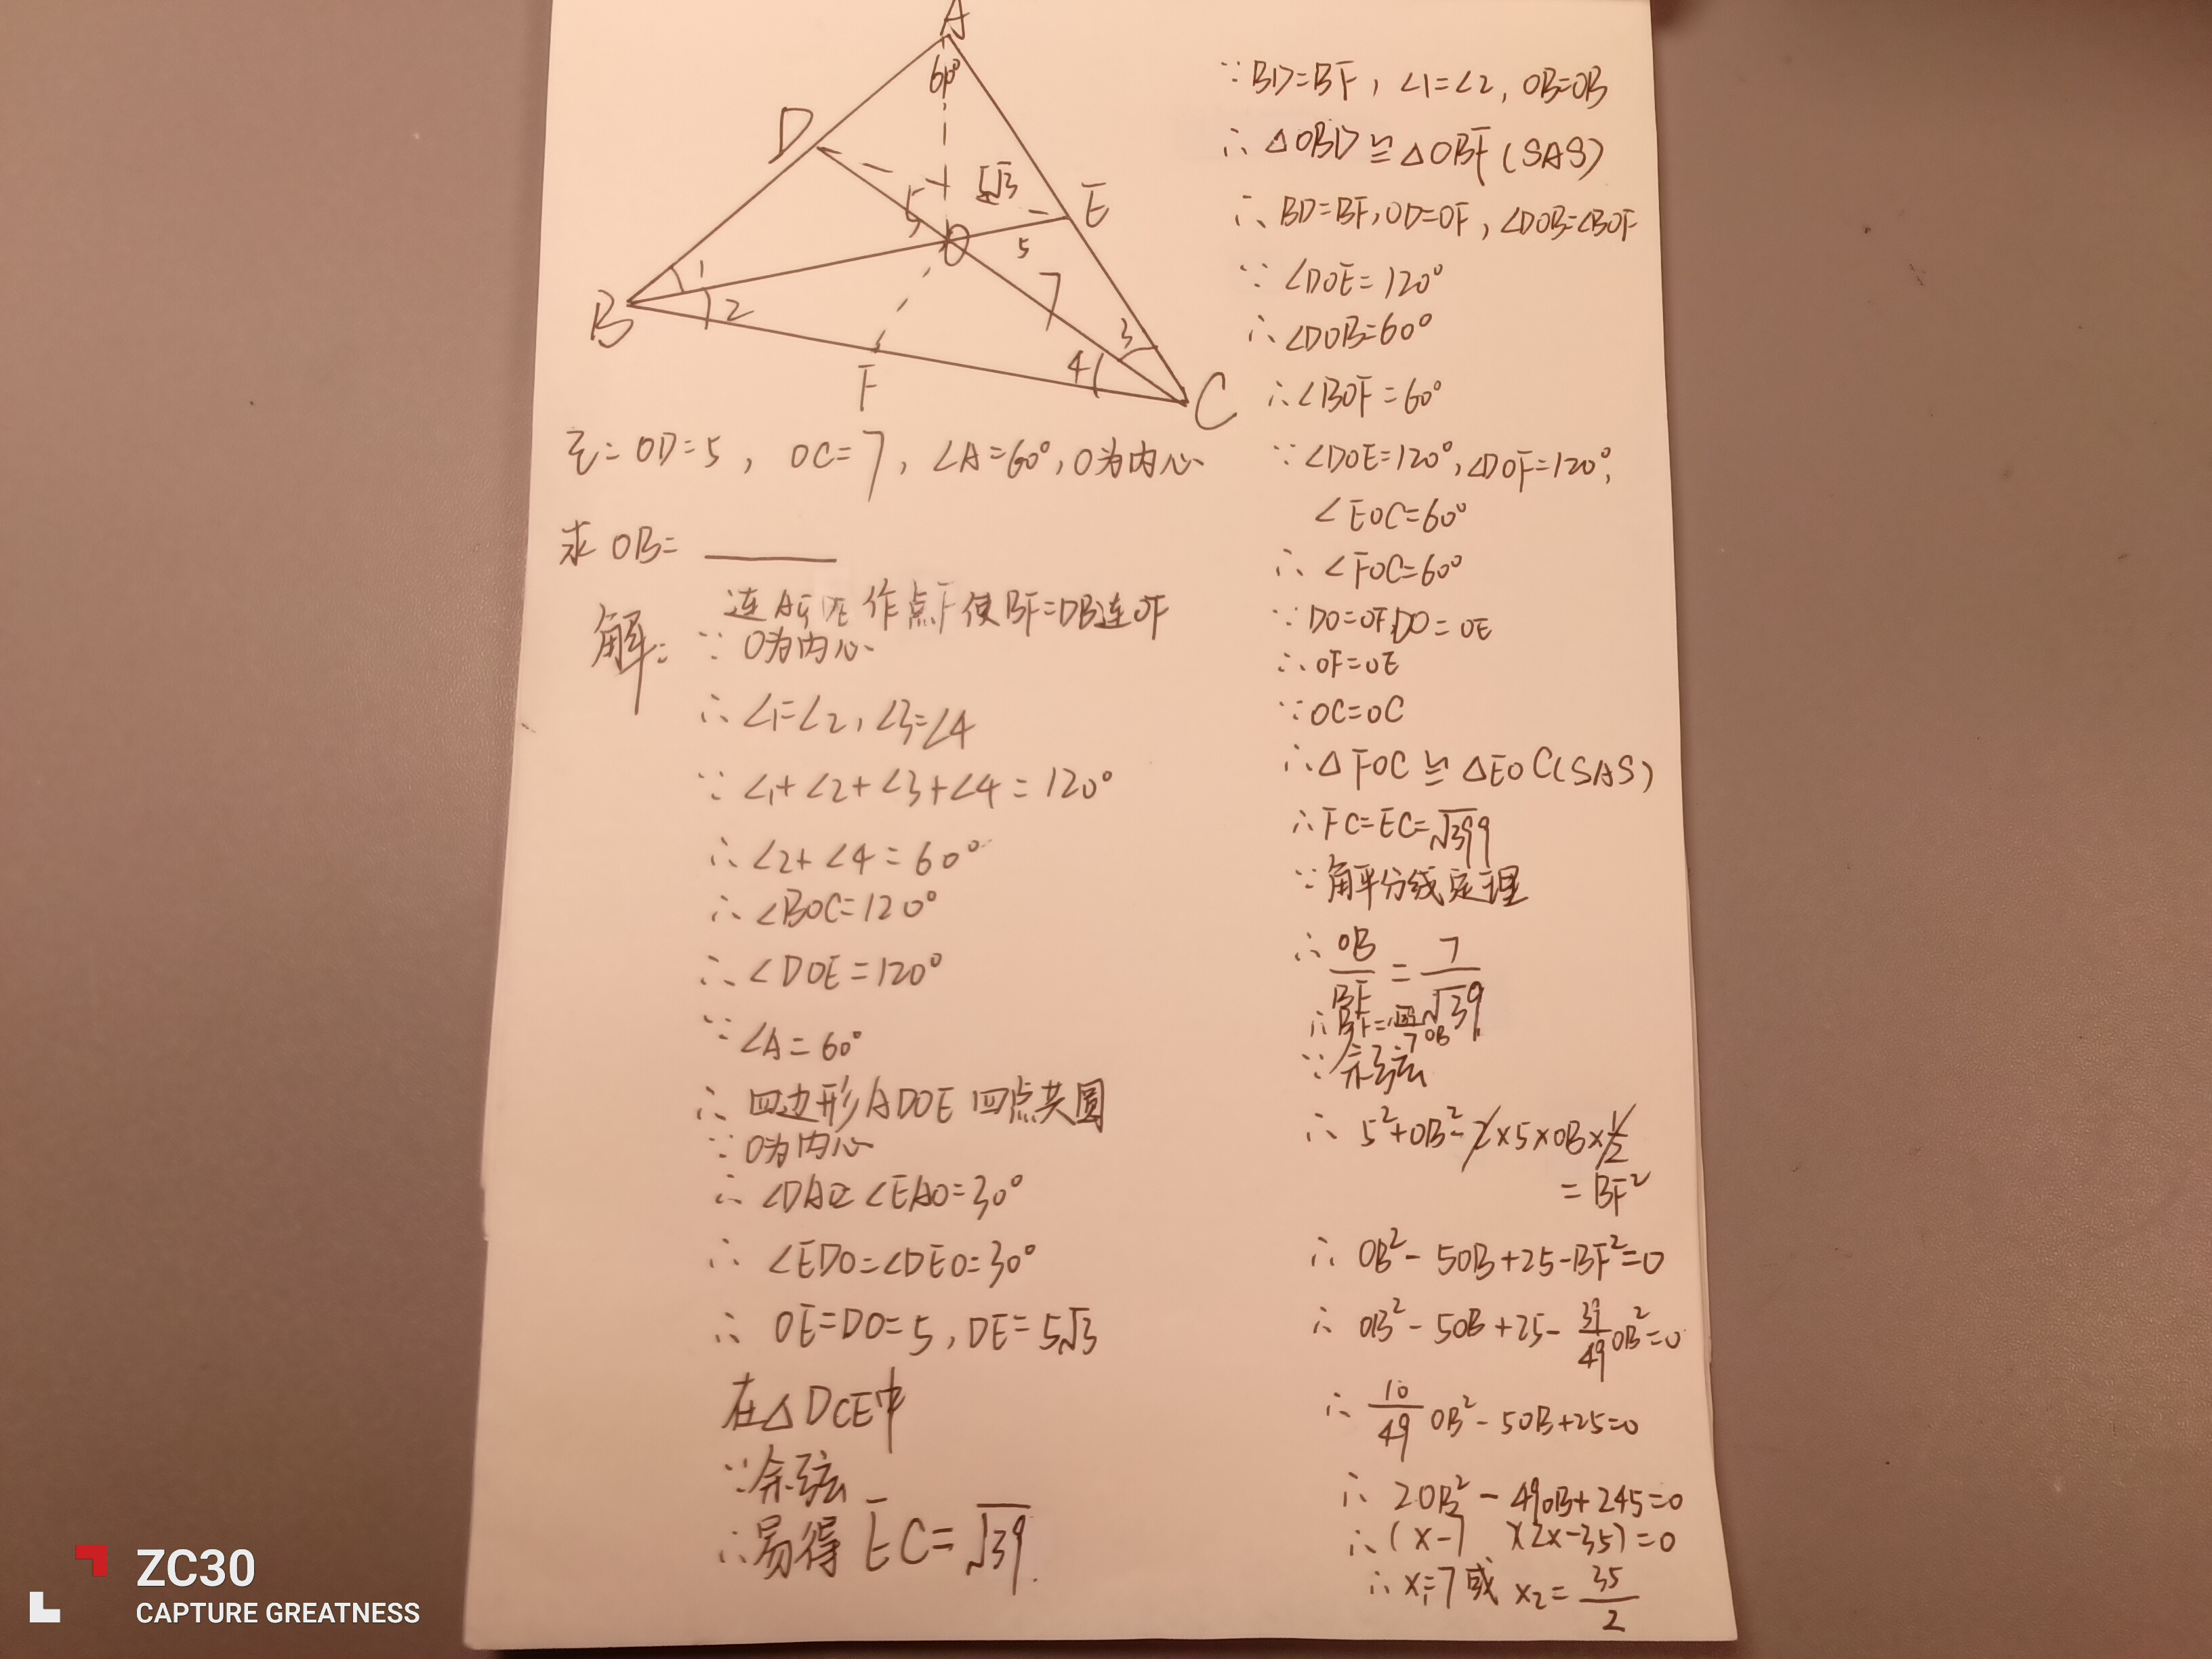 A
60°
D
5√3
E
5
O
5
1
7
B
2
3
4
F
C
OD=5, OC=7, ∠A=60°, O为内心
求 OB=
解:
作点F使BF=DB连OF
∵ O为内心
∴ ∠1=∠2, ∠3=∠4
∵ ∠1+∠2+∠3+∠4=120°
∴ ∠2+∠4=60°
∴ ∠BOC=120°
∴ ∠DOE=120°
∵ ∠A=60°
∴ 四边形ADOE 四点共圆
∵ O为内心
∴ ∠DAO=∠EAO=30°
∴ ∠EDO=∠DEO=30°
∴ OE=DO=5, DE=5√3
在△DCE中
∵余弦
∴易得 EC=√39.
∵BD=BF, ∠1=∠2, OB=OB
∴ △OBD≌△OBF(SAS)
∴ BD=BF, OD=OF, ∠DOB=∠BOF
∵ ∠DOE=120°
∴ ∠DOB=60°
∴∠BOF=60°
∵ ∠DOE=120°, ∠DOF=120°,
∠EOC=60°
∴ ∠FOC=60°
∵ DO=OF, DO=OE
∴ OF=OE
∵OC=OC
∴△FOC≌△EOC(SAS)
∴FC=EC=√39
∵角平分线定理
∴ OB/BF = 7/√39
∴BF=√39/7 OB
∵余弦
∴ 5²+OB²-2×5×OB×1/2
=BF²
∴ OB²-5OB+25-BF²=0
∴ OB²-5OB+25-39/49OB²=0
∴ 10/49 OB²-5OB+25=0
∴ 2OB²-49OB+245=0
∴(x-7)(2x-35)=0
∴x₁=7或 x₂=35/2
ZC30
CAPTURE GREATNESS